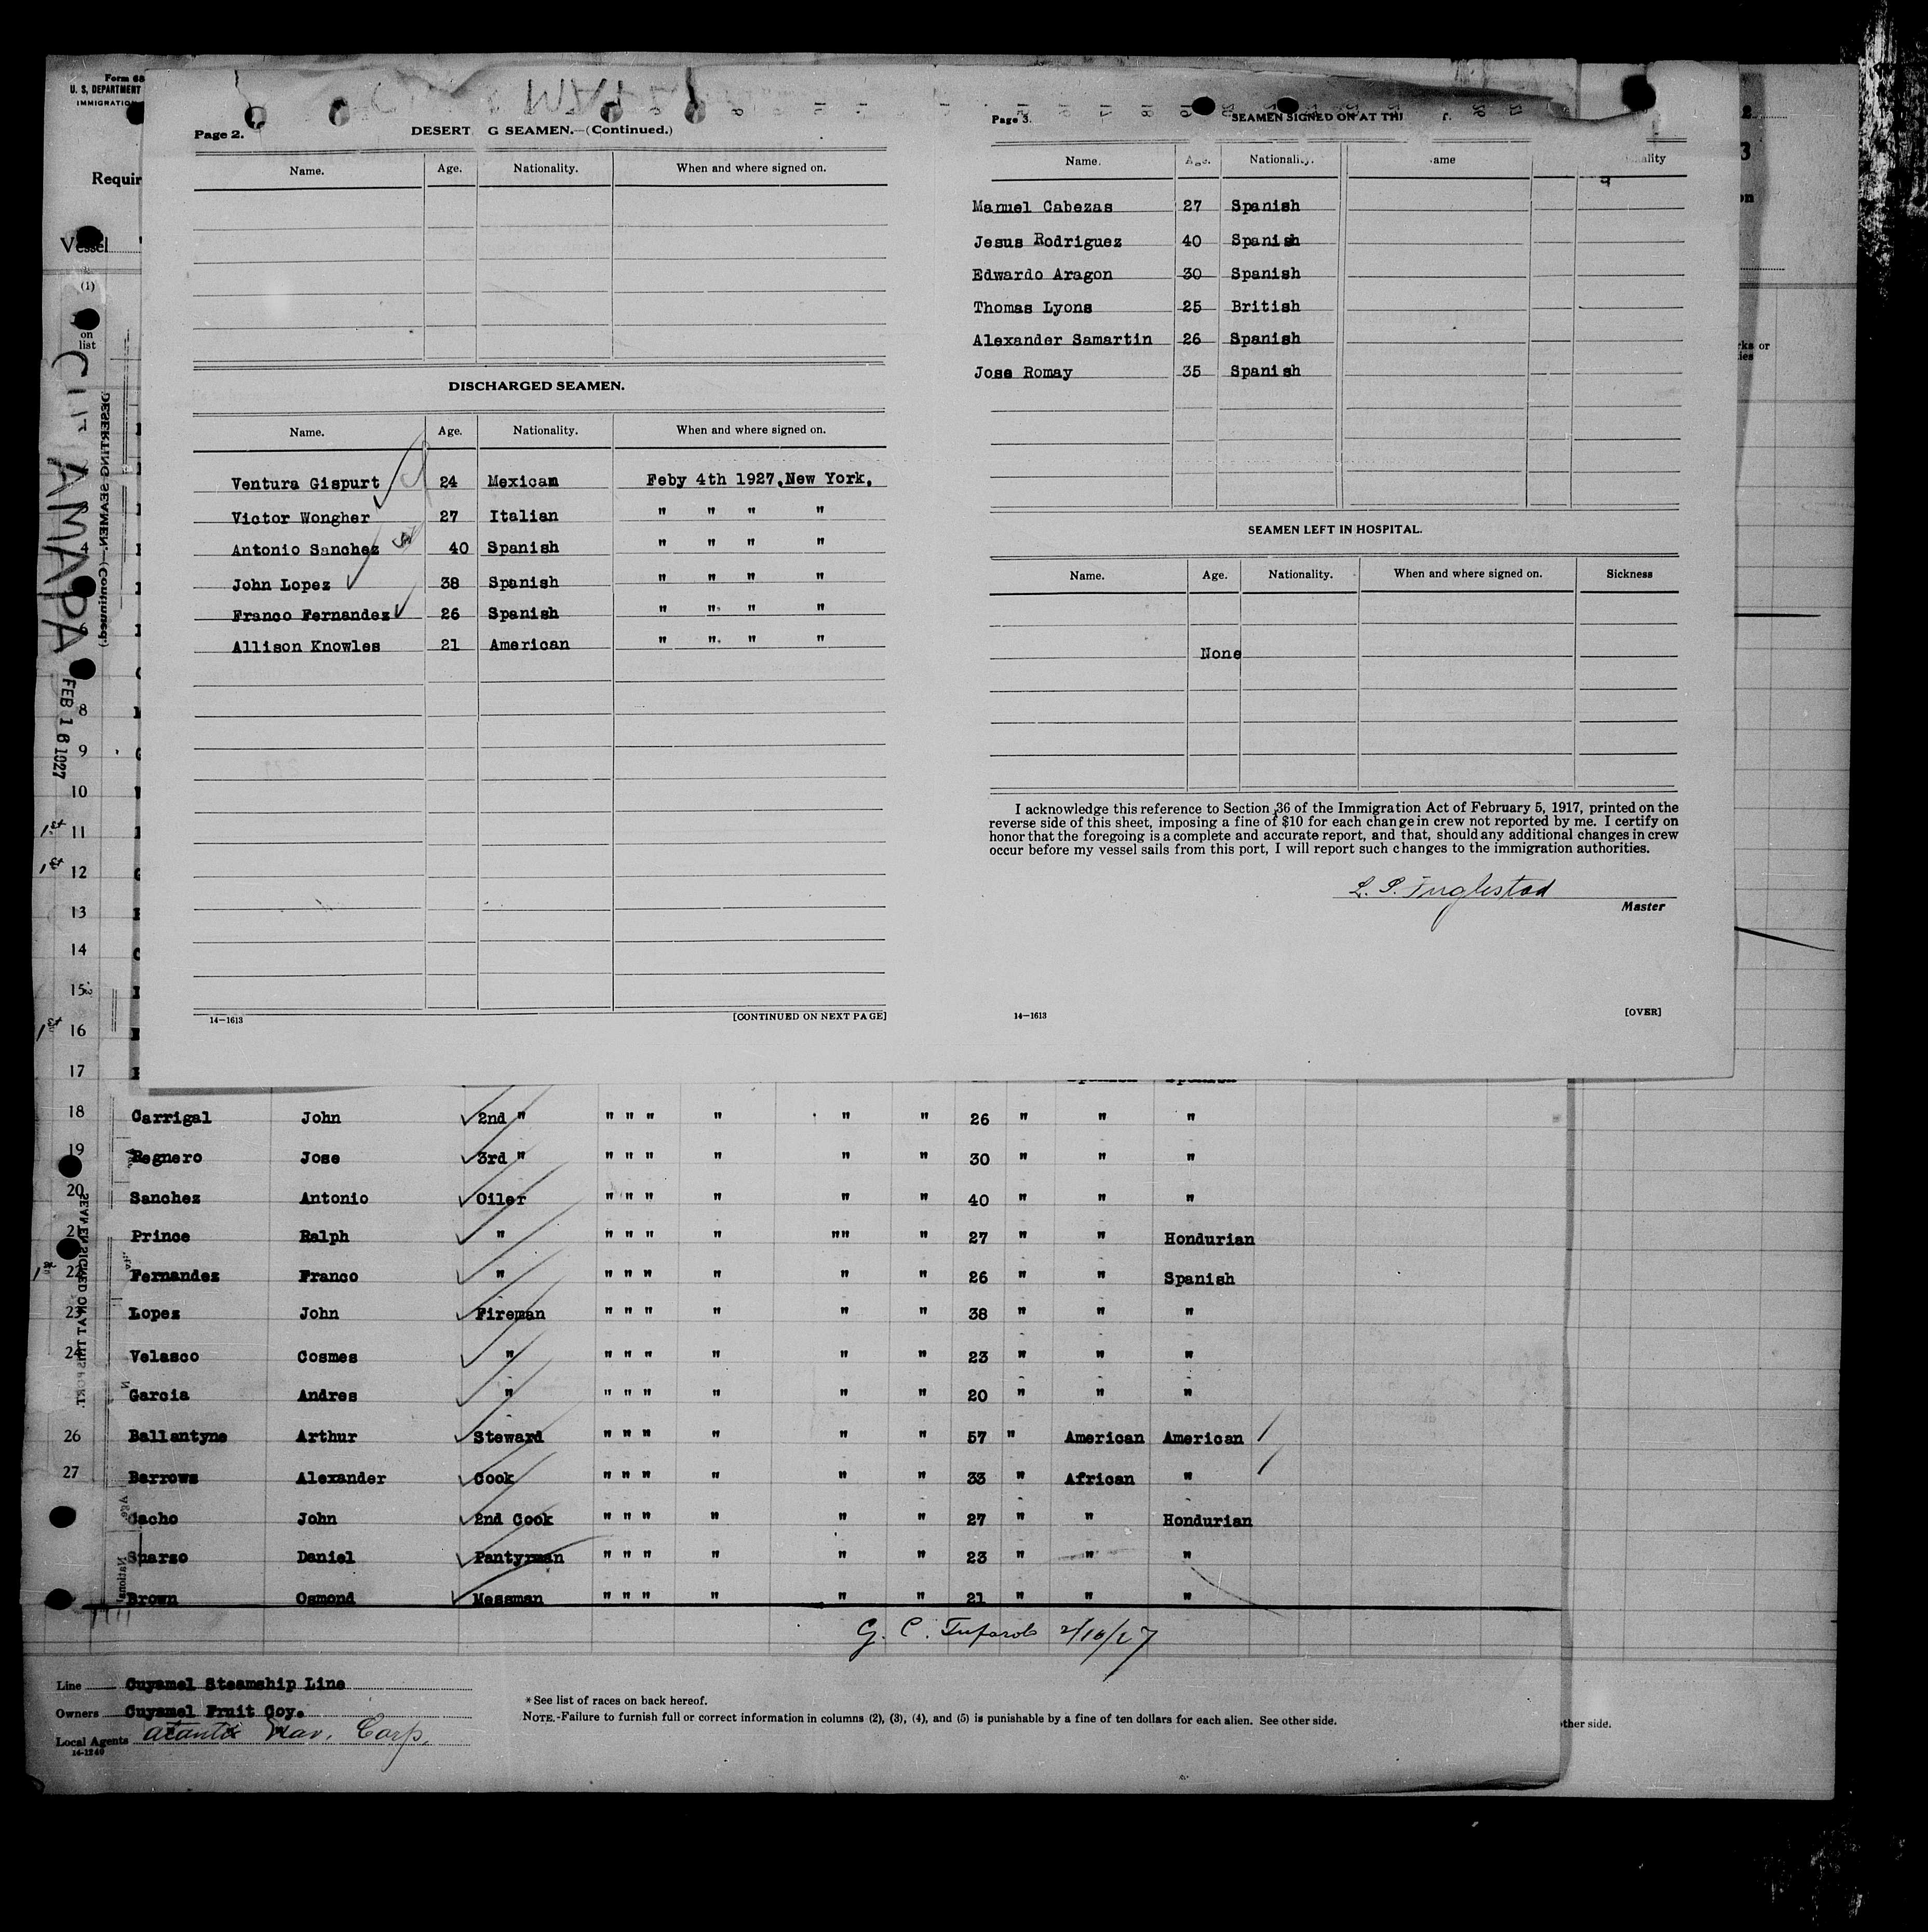 Form 68
U. S. DEPARTMENT
IMMIGRATION
Requir
Vessel
(1)
on
list
AMAPA
FEB 16 1927
DESERTING SEAMEN.—(Continued.)
Page 2.
DESERT G SEAMEN.—(Continued.)
Name. Age. Nationality. When and where signed on.
DISCHARGED SEAMEN.
Name. Age. Nationality. When and where signed on.
Ventura Gispurt 24 Mexican Feby 4th 1927, New York.
Victor Wongher 27 Italian " " " "
Antonio Sanchez 40 Spanish " " " "
John Lopez 38 Spanish " " " "
Franco Fernandez 26 Spanish " " " "
Allison Knowles 21 American " " " "
14—1613 [CONTINUED ON NEXT PAGE]
Page 3.
SEAMEN SIGNED ON AT THI
Name. Age. Nationality. ame ality
Manuel Cabezas 27 Spanish
Jesus Rodriguez 40 Spanish
Edwardo Aragon 30 Spanish
Thomas Lyons 25 British
Alexander Samartin 26 Spanish
Jose Romay 35 Spanish
SEAMEN LEFT IN HOSPITAL.
Name. Age. Nationality. When and where signed on. Sickness
None
I acknowledge this reference to Section 36 of the Immigration Act of February 5, 1917, printed on the
reverse side of this sheet, imposing a fine of $10 for each change in crew not reported by me. I certify on
honor that the foregoing is a complete and accurate report, and that, should any additional changes in crew
occur before my vessel sails from this port, I will report such changes to the immigration authorities.
L. S. Inglestad
Master
14—1613 [OVER]
4
8
9
10
1st 11
1st 12
13
14
15
1st 16
17
18 Carrigal John 2nd " " " " " " " 26 " " "
19 Regnero Jose 3rd " " " " " " " 30 " " "
20 Sanchez Antonio Oiler " " " " " " 40 " " "
21 Prince Ralph " " " " " "" " 27 " " Hondurian
22 Fernandez Franco " " " " " " " 26 " " Spanish
23 Lopez John Fireman " " " " " " 38 " " "
24 Velasco Cosmes " " " " " " " 23 " " "
Garcia Andres " " " " " " " 20 " " "
26 Ballantyne Arthur Steward " " " " " " 57 " American American
27 Barrows Alexander Cook " " " " " " 33 " African "
Cacho John 2nd Cook " " " " " " 27 " " Hondurian
Sparzo Daniel Pantyrman " " " " " " 23 " " "
Brown Osmond Messman " " " " " " 21 " " "
SEAMEN SIGNED ON AT THIS PORT.
G. C. 2/16/27
Line Cuyamel Steamship Line
Owners Cuyamel Fruit Coy.
Local Agents Nav. Corp.
14-1249
* See list of races on back hereof.
NOTE.-Failure to furnish full or correct information in columns (2), (3), (4), and (5) is punishable by a fine of ten dollars for each alien. See other side.
other side.